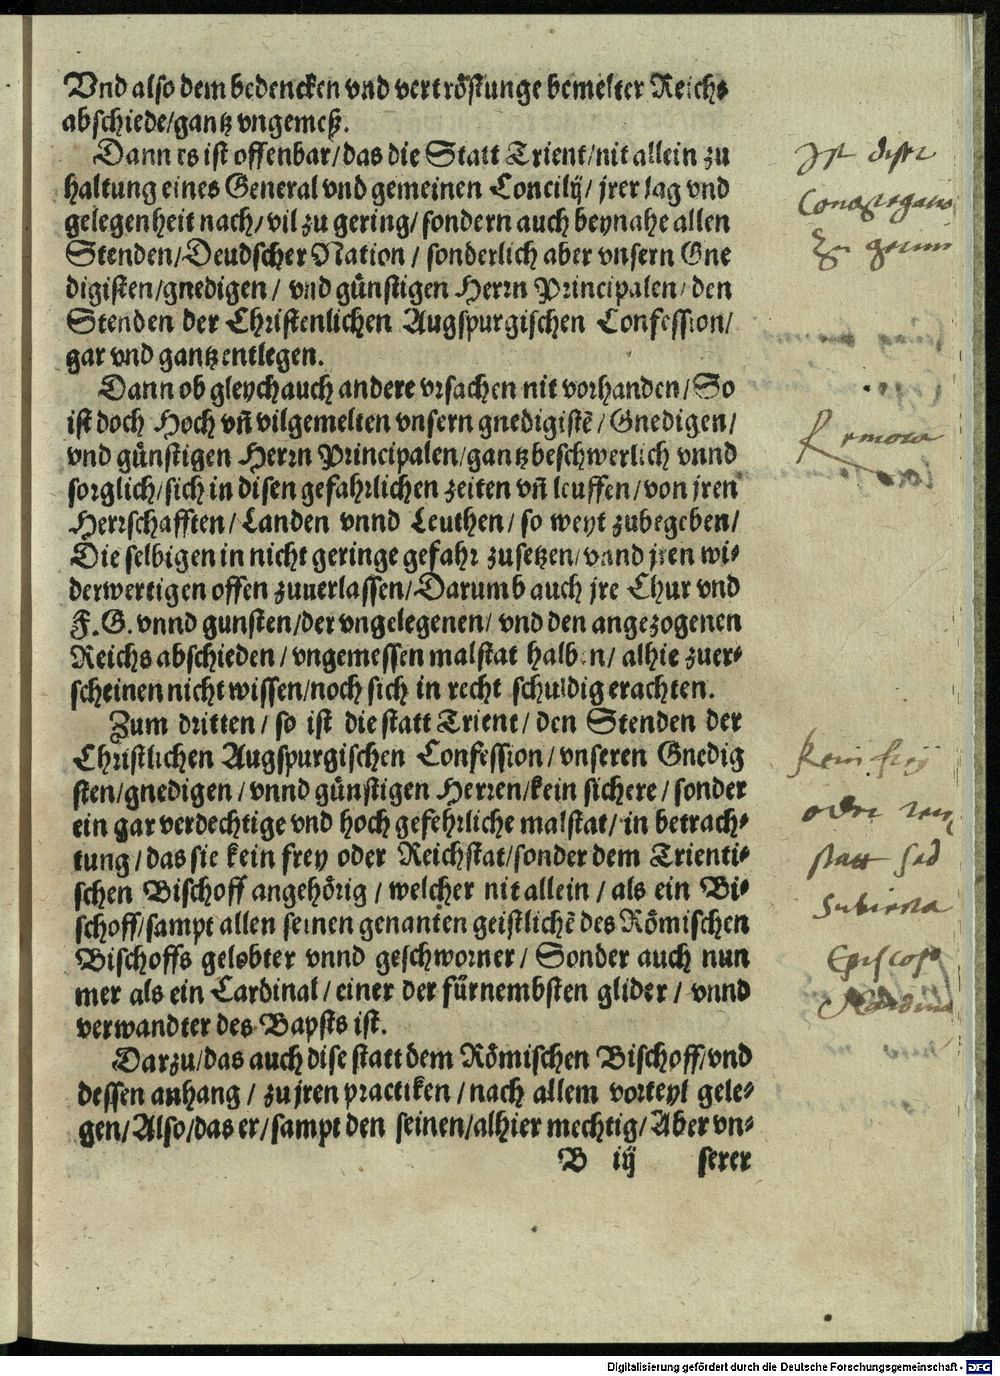 Vnd also dem bedencken vnd vertröstunge bemelter Reichs
abschiede/gantz vngemeß.
Dann es ist offenbar/das die Statt Trient/nit allein zu
haltung eines General vnd gemeinen Concilij/ jrer lag vnd
gelegenheit nach/vil zu gering/sondern auch beynahe allen
Stenden/Deudscher Nation/ sonderlich aber vnsern Gne
digisten/gnedigen/ vnd günstigen Herrn Principalen/den
Stenden der Christenlichen Augspurgischen Confession/
gar vnd gantz entlegen.
Dann ob gleych auch andere vrsachen nit vorhanden/So
ist doch Hoch vñ vilgemelten vnsern gnedigistẽ/Gnedigen/
vnd günstigen Herrn Principalen/gantz beschwerlich vnnd
sorglich/sich in disen gefahrlichen zeiten vñ leuffen/von jren
Herrschafften/Landen vnnd Leuthen/so weyt zubegeben/
Die selbigen in nicht geringe gefahr zusetzen/vnnd jren wi-
derwertigen offen zuuerlassen/Darumb auch jre Chur vnd
F.G. vnnd gunsten/der vngelegenen/ vnd den angezogenen
Reichs abschieden/vngemessen malstat halben/alhie zuer-
scheinen nicht wissen/noch sich in recht schuldig erachten.
Zum dritten/so ist die statt Trient/den Stenden der
Christlichen Augspurgischen Confession/vnseren Gnedig
sten/gnedigen/vnnd günstigen Herren/kein sichere/sonder
ein gar verdechtige vnd hoch gefehrliche malstat/in betrach-
tung/das sie kein frey oder Reichstat/sonder dem Trienti-
schen Bischoff angehörig/welcher nit allein/als ein Bi-
schoff/sampt allen seinen genanten geistlichẽ des Römischen
Bischoffs gelobter vnnd geschworner/Sonder auch nun
mer als ein Cardinal/einer der fürnembsten glider/vnnd
verwandter des Bapsts ist.
Darzu/das auch dise statt dem Römischen Bischoff/vnd
dessen anhang/zu jren practiken/nach allem vorteyl gele-
gen/Also/das er/sampt den seinen/alhier mechtig/Aber vn-
B iij serer
Zu
Remota
kein frey
oder
statt sed
Subiecta
Episcopo
Digitalisierung gefördert durch die Deutsche Forschungsgemeinschaft - DFG